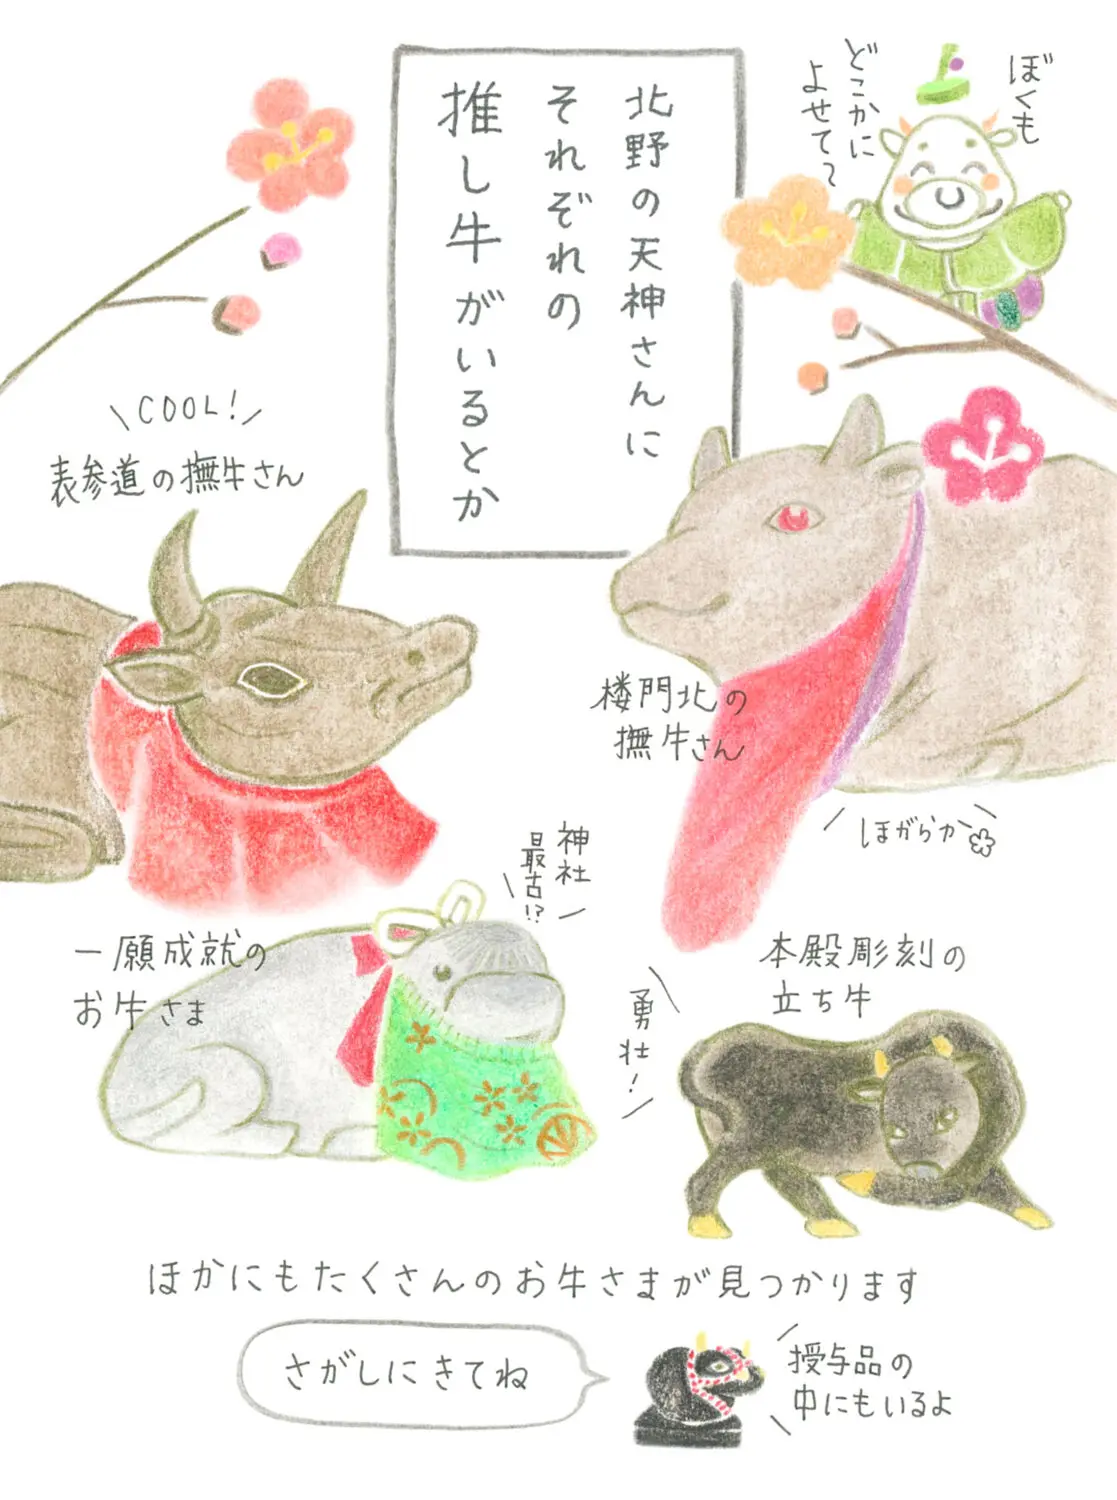 北野の天神さんに
それぞれの
推し牛がいるとか
ぼくも
どこかに
よせて〜
COOL!
表参道の撫牛さん
楼門北の
撫牛さん
ほがらか
神社
最古!?
一願成就の
お牛さま
本殿彫刻の
立ち牛
勇壮!
ほかにもたくさんのお牛さまが見つかります
さがしにきてね
授与品の
中にもいるよ